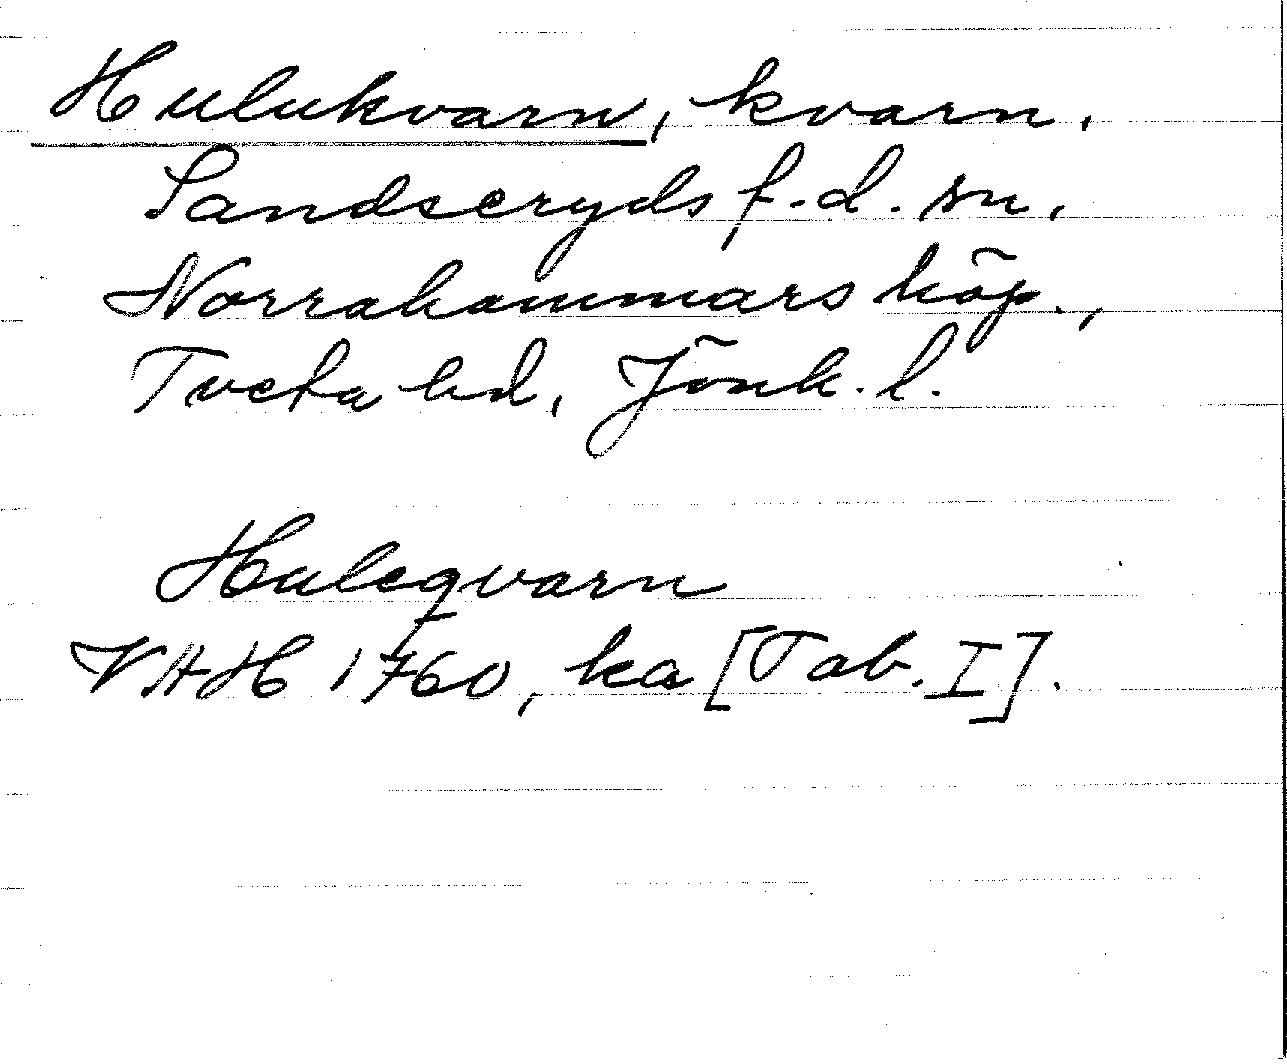 Hulukvarn, kvarn.
Sandseryds f.d. sn.
Norrahammars köp.,
Tveta hd, Jönk. l.
Huleqvarn
VAH 1760, ka [Tab. I].